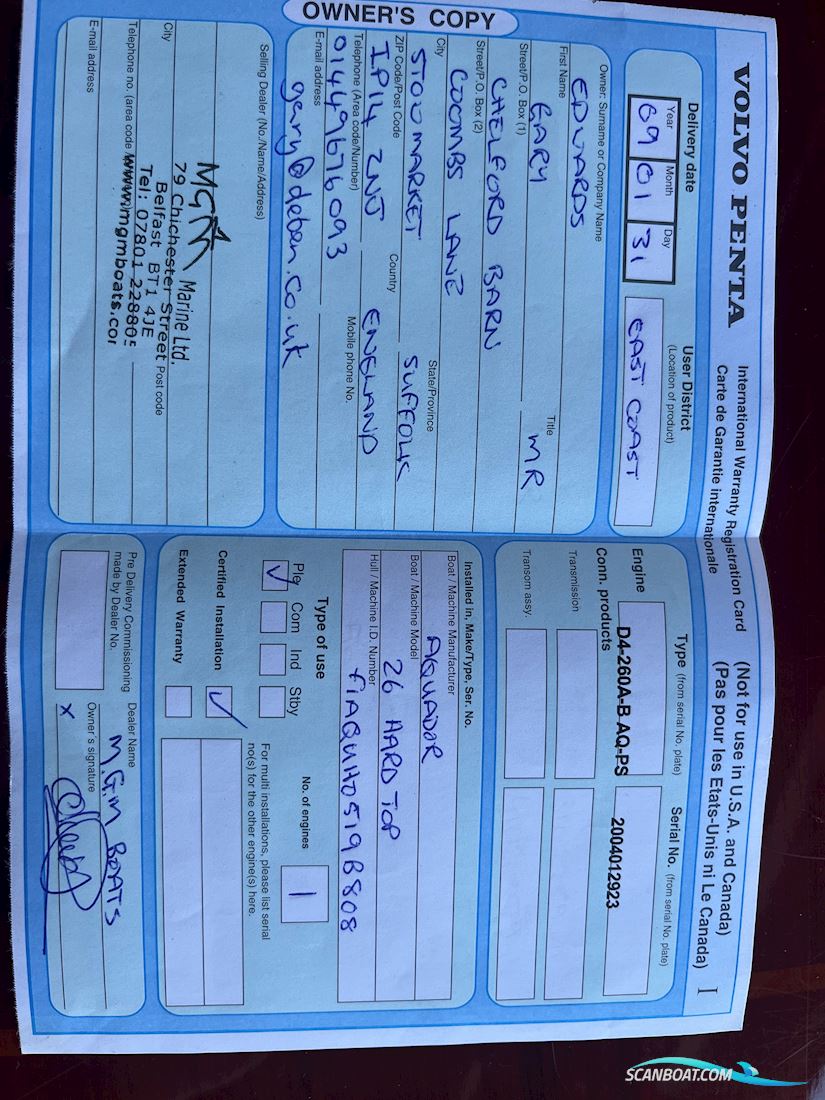 OWNER'S COPY
VOLVO PENTA
International Warranty Registration Card
Carte de Garantie internationale
(Not for use in U.S.A. and Canada)
(Pas pour les Etats-Unis ni Le Canada)
I
Delivery date
Year Month Day
09 01 31
User District
(Location of product)
EAST COAST
Owner: Surname or Company Name
EDWARDS
First Name
Title
GARY
MR
Street/P.O. Box (1)
CHELFORD BARN
Street/P.O. Box (2)
COOMBS LANE
City
State/Province
STOWMARKET
SUFFOLK
ZIP Code/Post Code
Country
IP14 2NJ
ENGLAND
Telephone (Area code/Number)
Mobile phone No.
01449676093
E-mail address
gary@deben.co.uk
Selling Dealer (No./Name/Address)
MGM Marine Ltd.
79 Chichester Street
Belfast BT1 4JE
City
Post code
Tel: 07801 228805
Telephone no. (area code
www.mgmboats.com
E-mail address
Type (from serial No. plate)
Serial No. (from serial No. plate)
Engine
D4-260A-B AQ-PS
2004012923
Conn. products
Transmission
Transom assy.
Installed in, Make/Type, Ser. No.
Boat / Machine Manufacturer
AQUADOR
Boat / Machine Model
26 HARD TOP
Hull / Machine I.D. Number
FIAQUH0519B808
Type of use
No. of engines
Ple Com Ind Stby
1
Certified Installation
For multi installations, please list serial
no(s) for the other engine(s) here.
Extended Warranty
Pre Delivery Commissioning
made by Dealer No.
Dealer Name
M.G.M BOATS
Owner's signature
x
SCANBOAT.COM